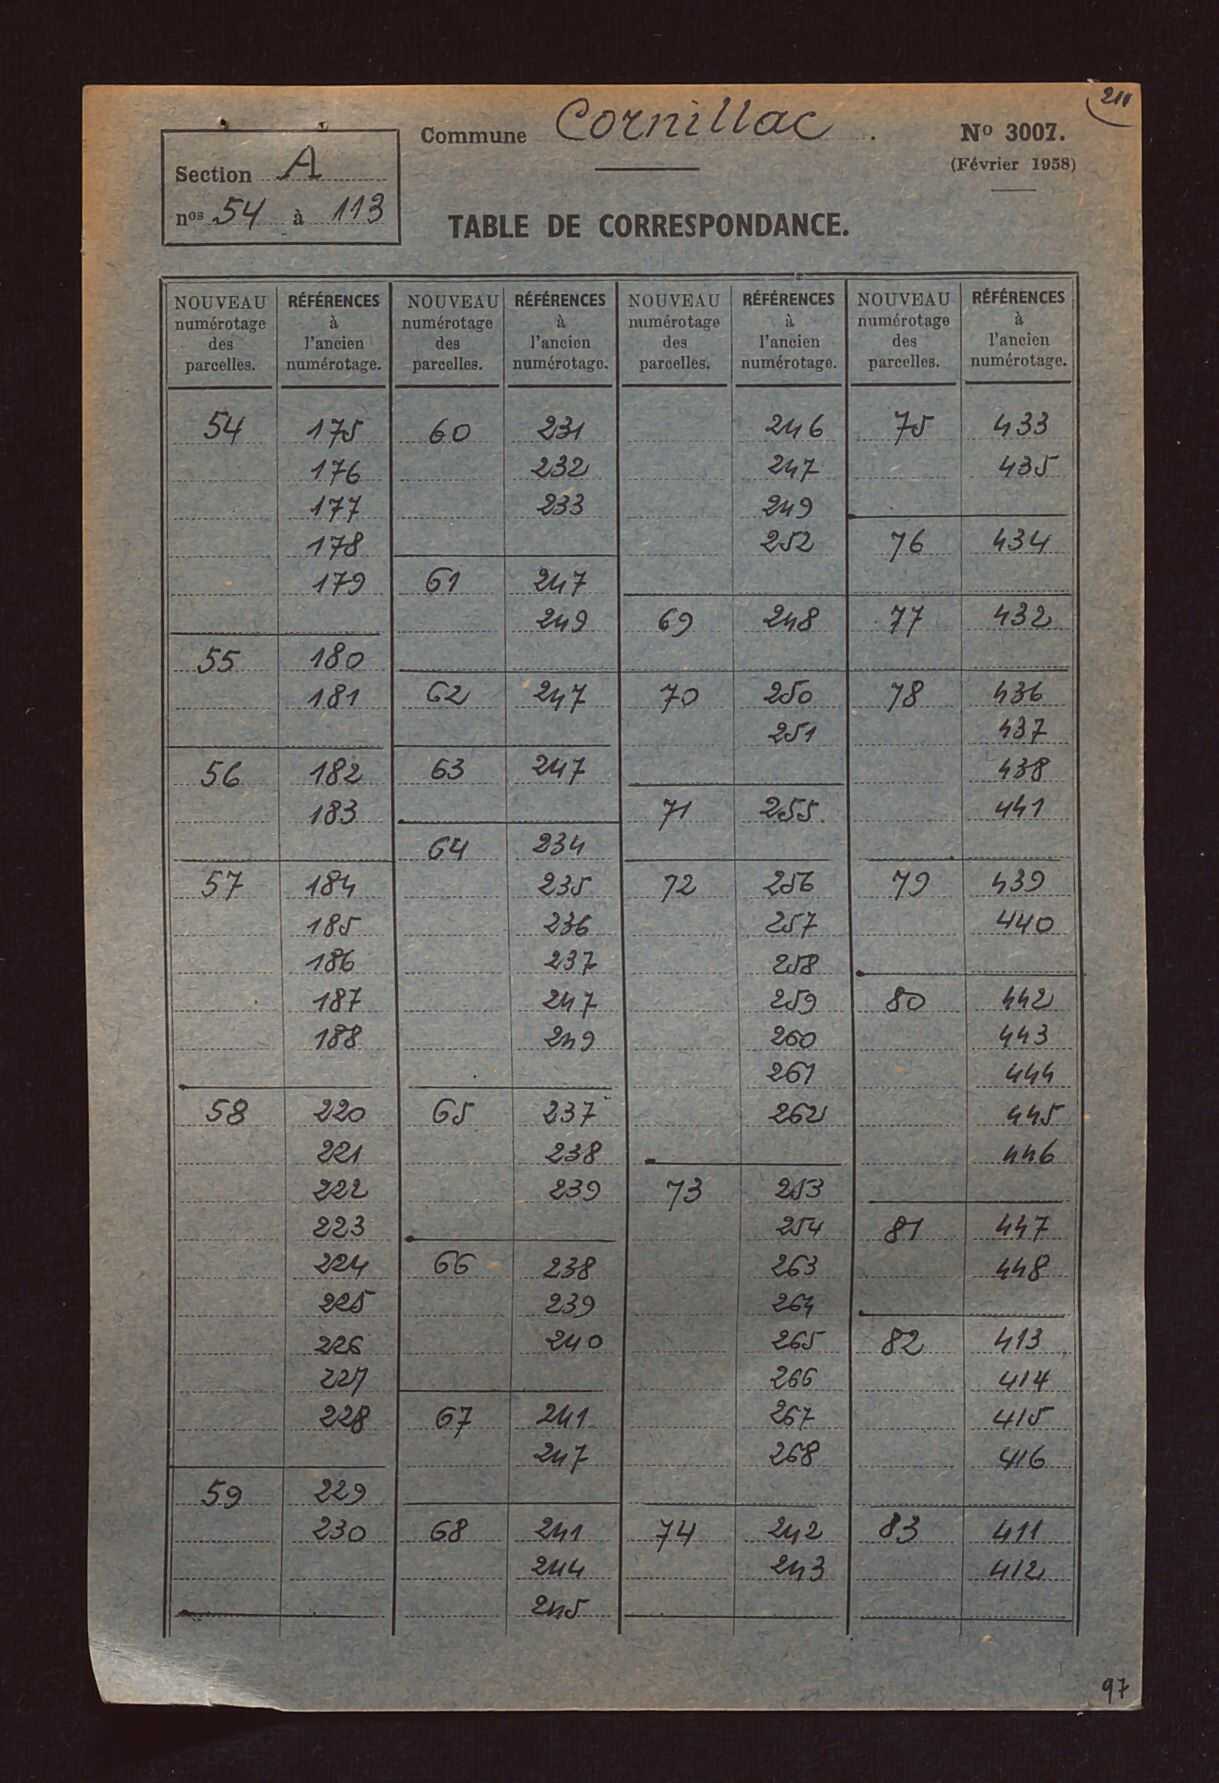 211
Commune Cornillac.
Nº 3007.
(Février 1958)
Section A
nos 54 à 113
TABLE DE CORRESPONDANCE.
NOUVEAU numérotage des parcelles. RÉFÉRENCES à l'ancien numérotage. NOUVEAU numérotage des parcelles. RÉFÉRENCES à l'ancien numérotage. NOUVEAU numérotage des parcelles. RÉFÉRENCES à l'ancien numérotage. NOUVEAU numérotage des parcelles. RÉFÉRENCES à l'ancien numérotage.
54 175
176
177
178
179
55 180
181
56 182
183
57 184
185
186
187
188
58 220
221
222
223
224
225
226
227
228
59 229
230
60 231
232
233
61 247
249
62 247
63 247
64 234
235
236
237
247
249
65 237
238
239
66 238
239
240
67 241
247
68 241
244
245
246
247
249
252
69 248
70 250
251
71 255
72 256
257
258
259
260
261
262
73 253
254
263
264
265
266
267
268
74 242
243
75 433
435
76 434
77 432
78 436
437
438
441
79 439
440
80 442
443
444
445
446
81 447
448
82 413
414
415
416
83 411
412
97